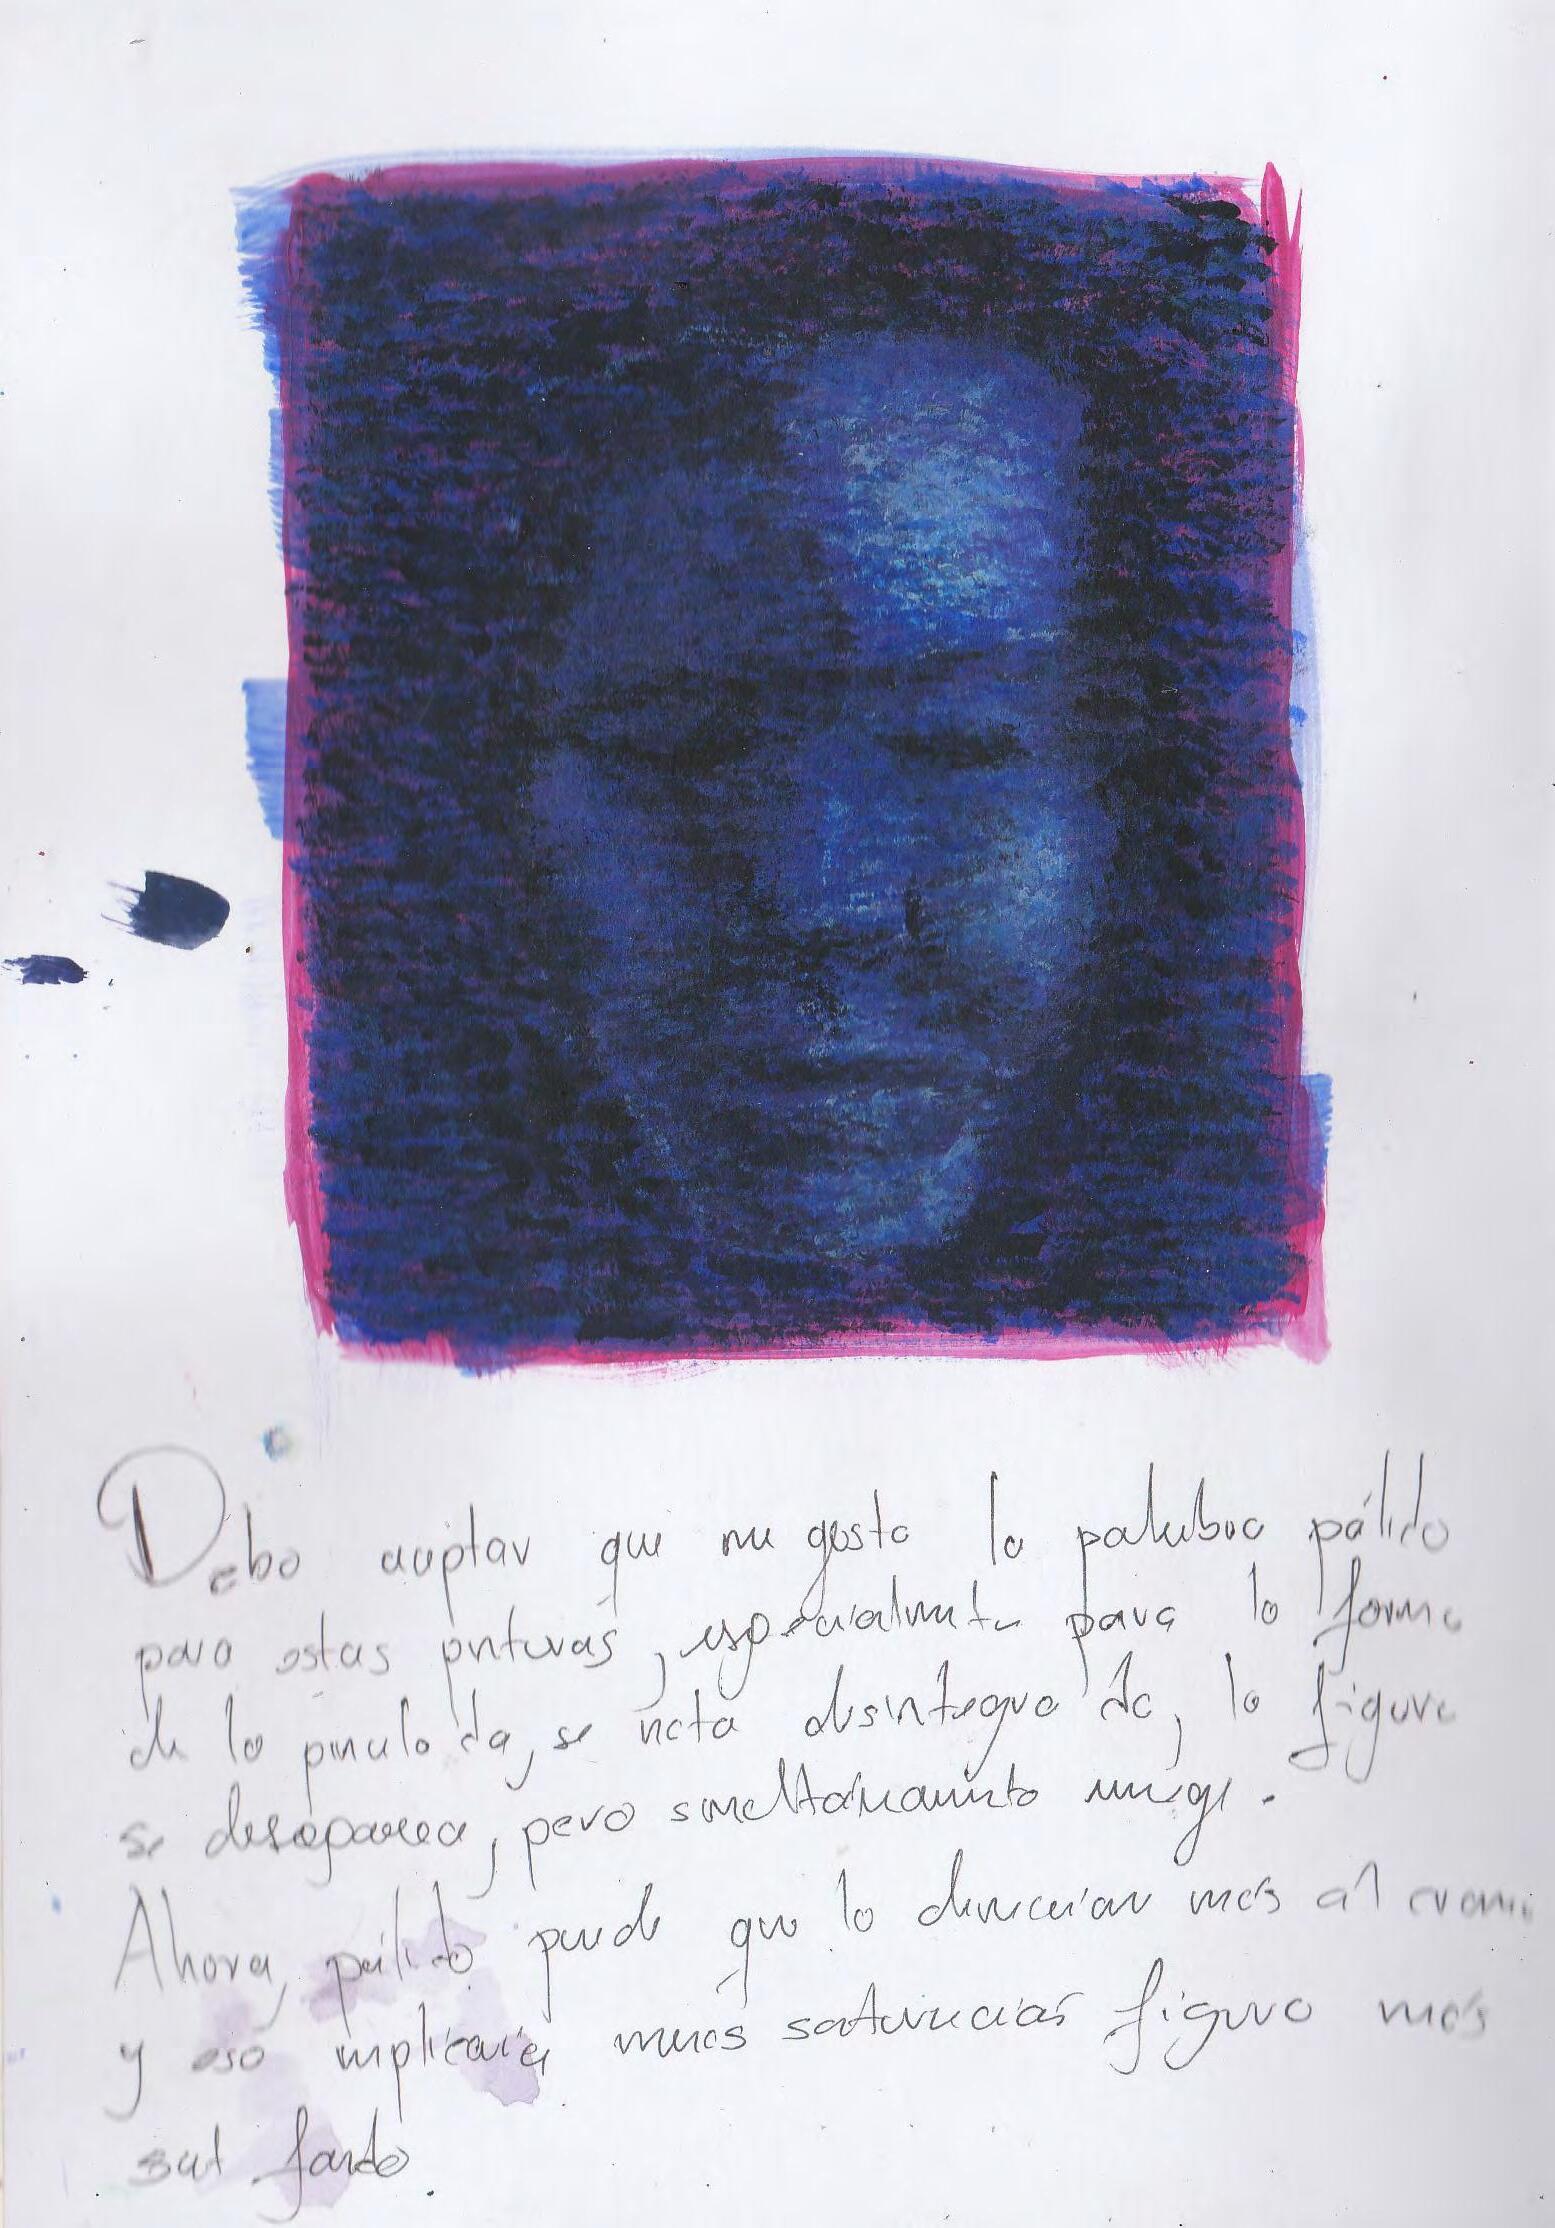 Debo aceptar que me gusta la palabra pálido
para estas pinturas, especialmente para la forma
de la pincelada, se nota desintegrada, la figura
se desaparece, pero simultáneamente emerge.
Ahora, pálido puede que lo direccionar más al
y eso implicaría menos saturación figura más
sat fondo.